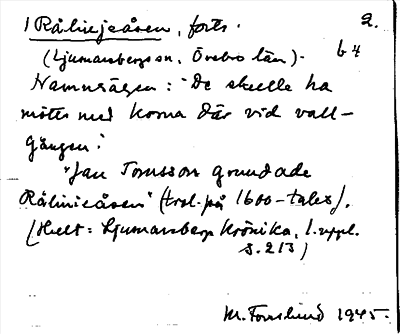 1 Rålinjeåsen, forts. 2.
(Ljusnarsbergs sn, Örebro län). b 4
Namnsägen: "De skulle ha
mötts med korna där vid vall-
gången."
"Jan Tomsson grundade
Rålinieåsen" (trol. på 1600-talet).
(Hult: Ljusnarsbergs krönika, 1. uppl.
s. 213)
M. Forslund 1945.